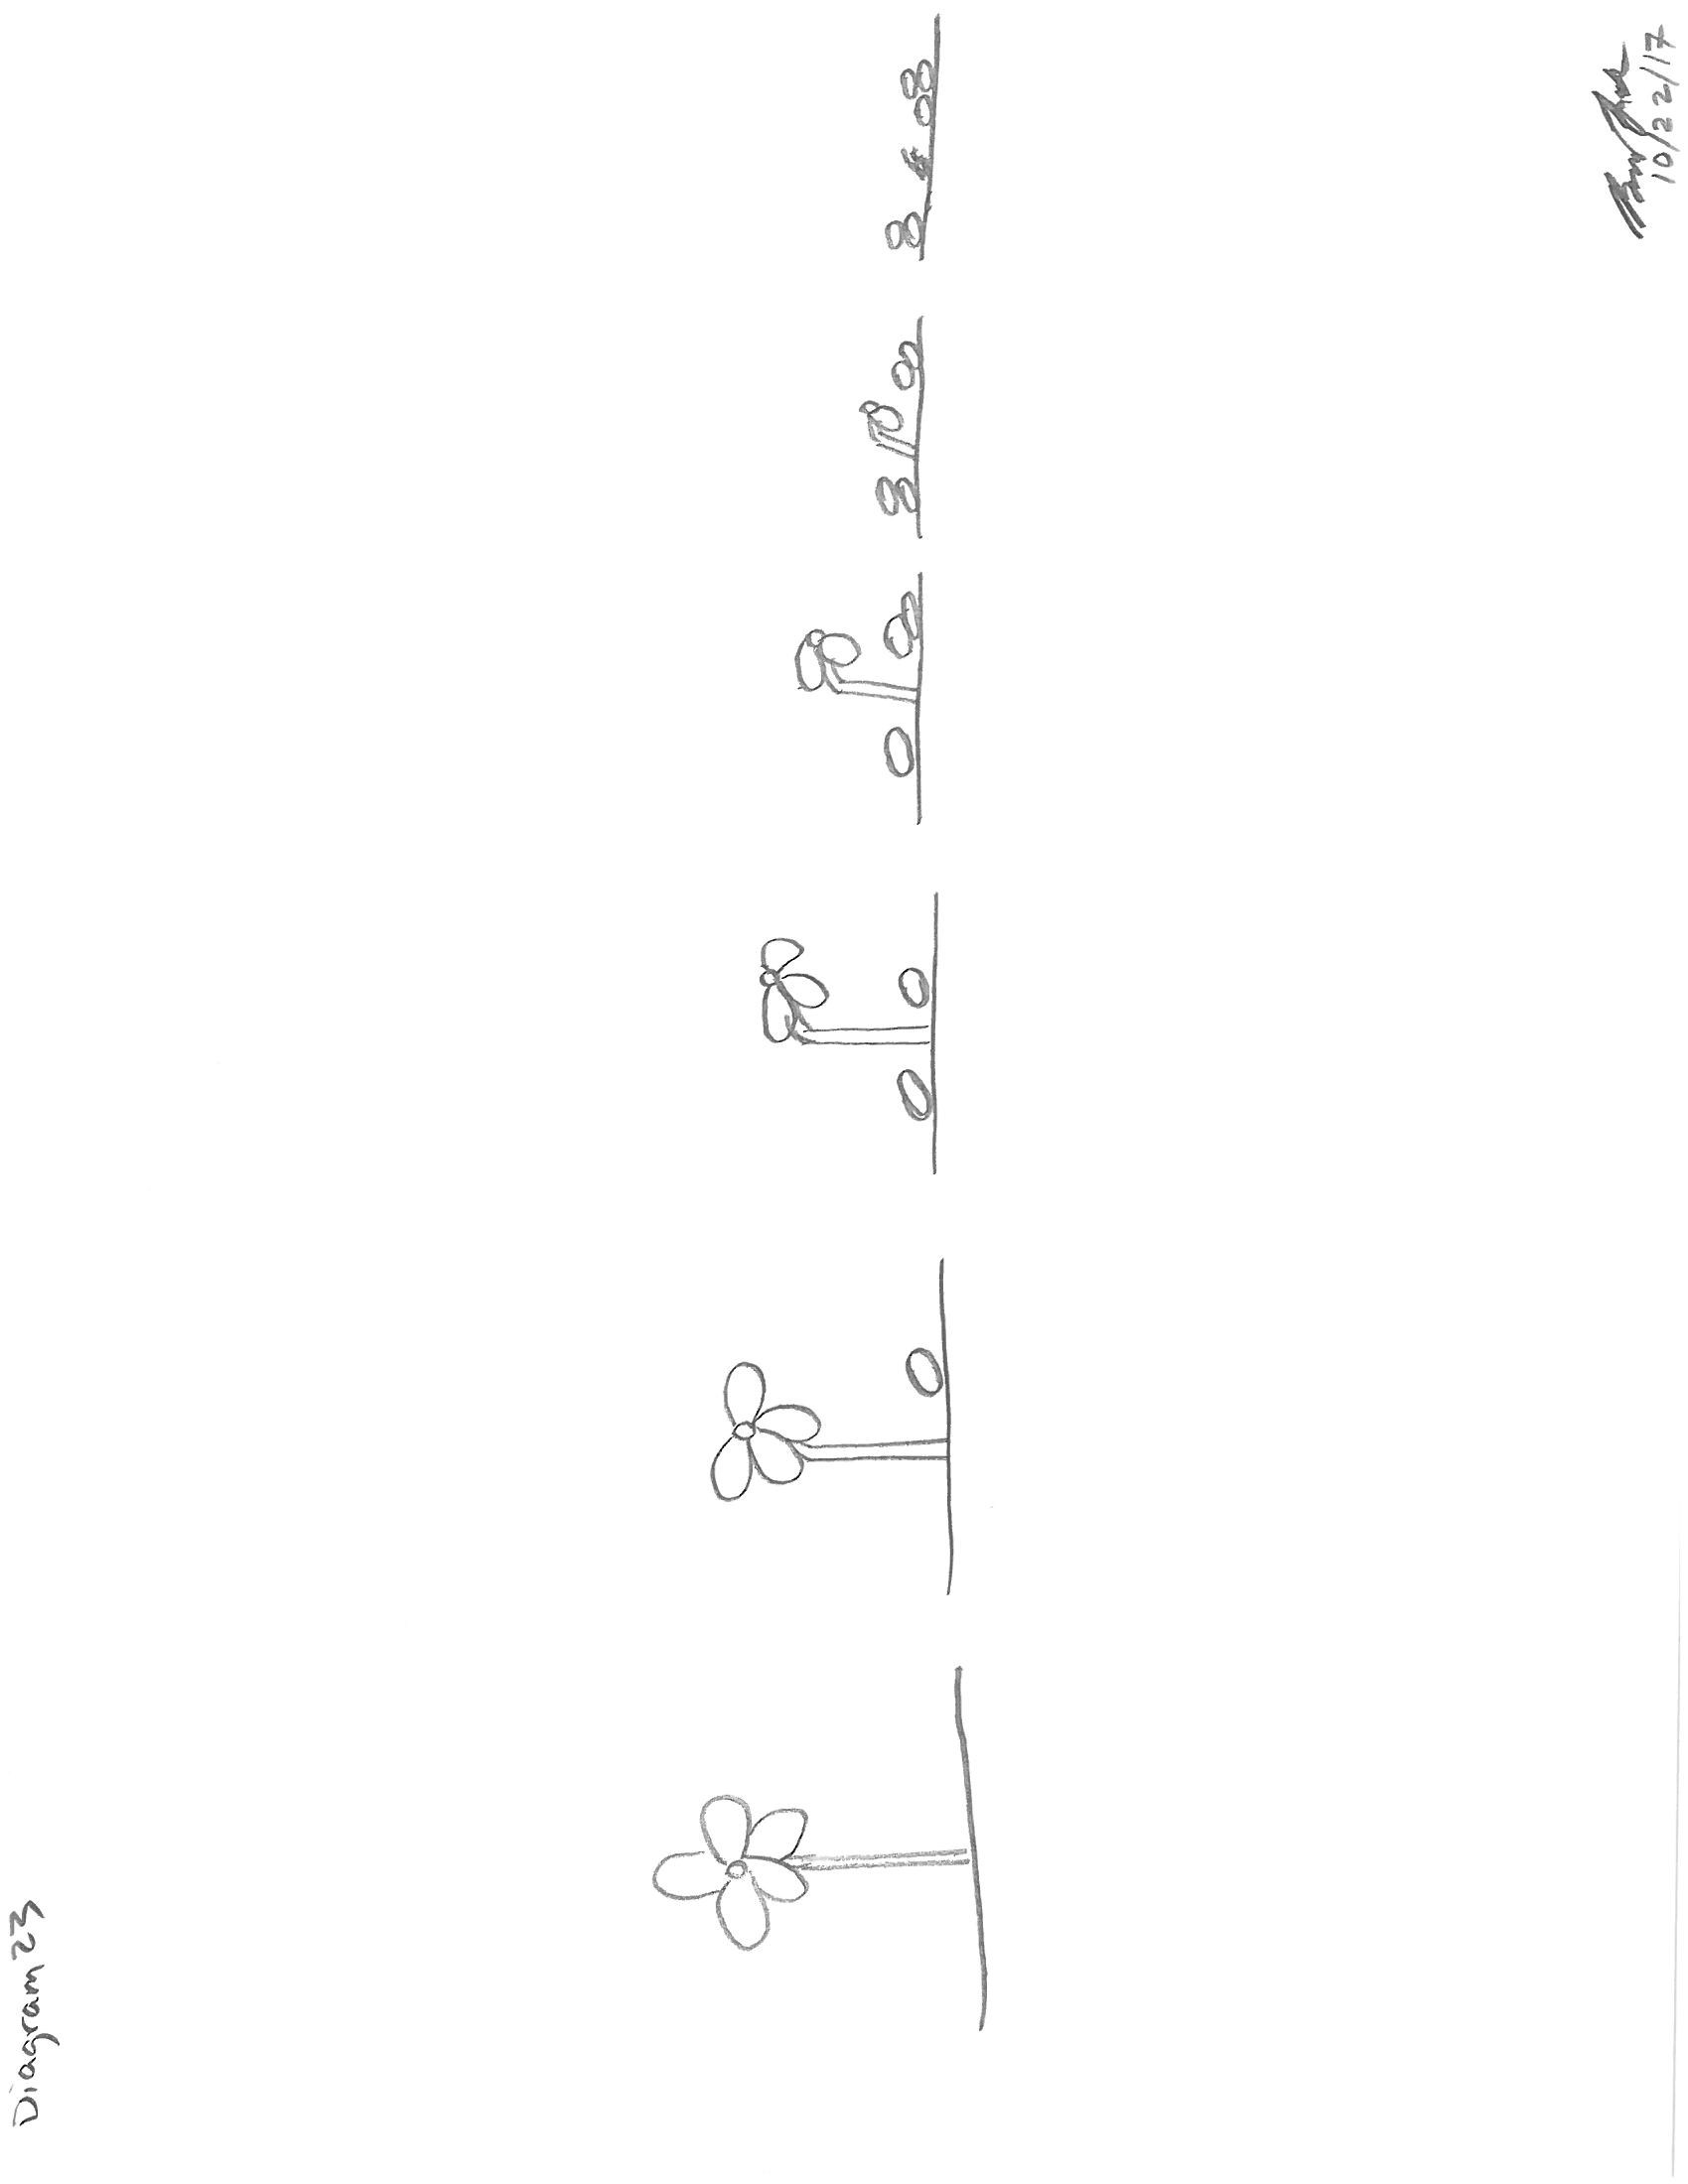 Diagram 23
10/22/17